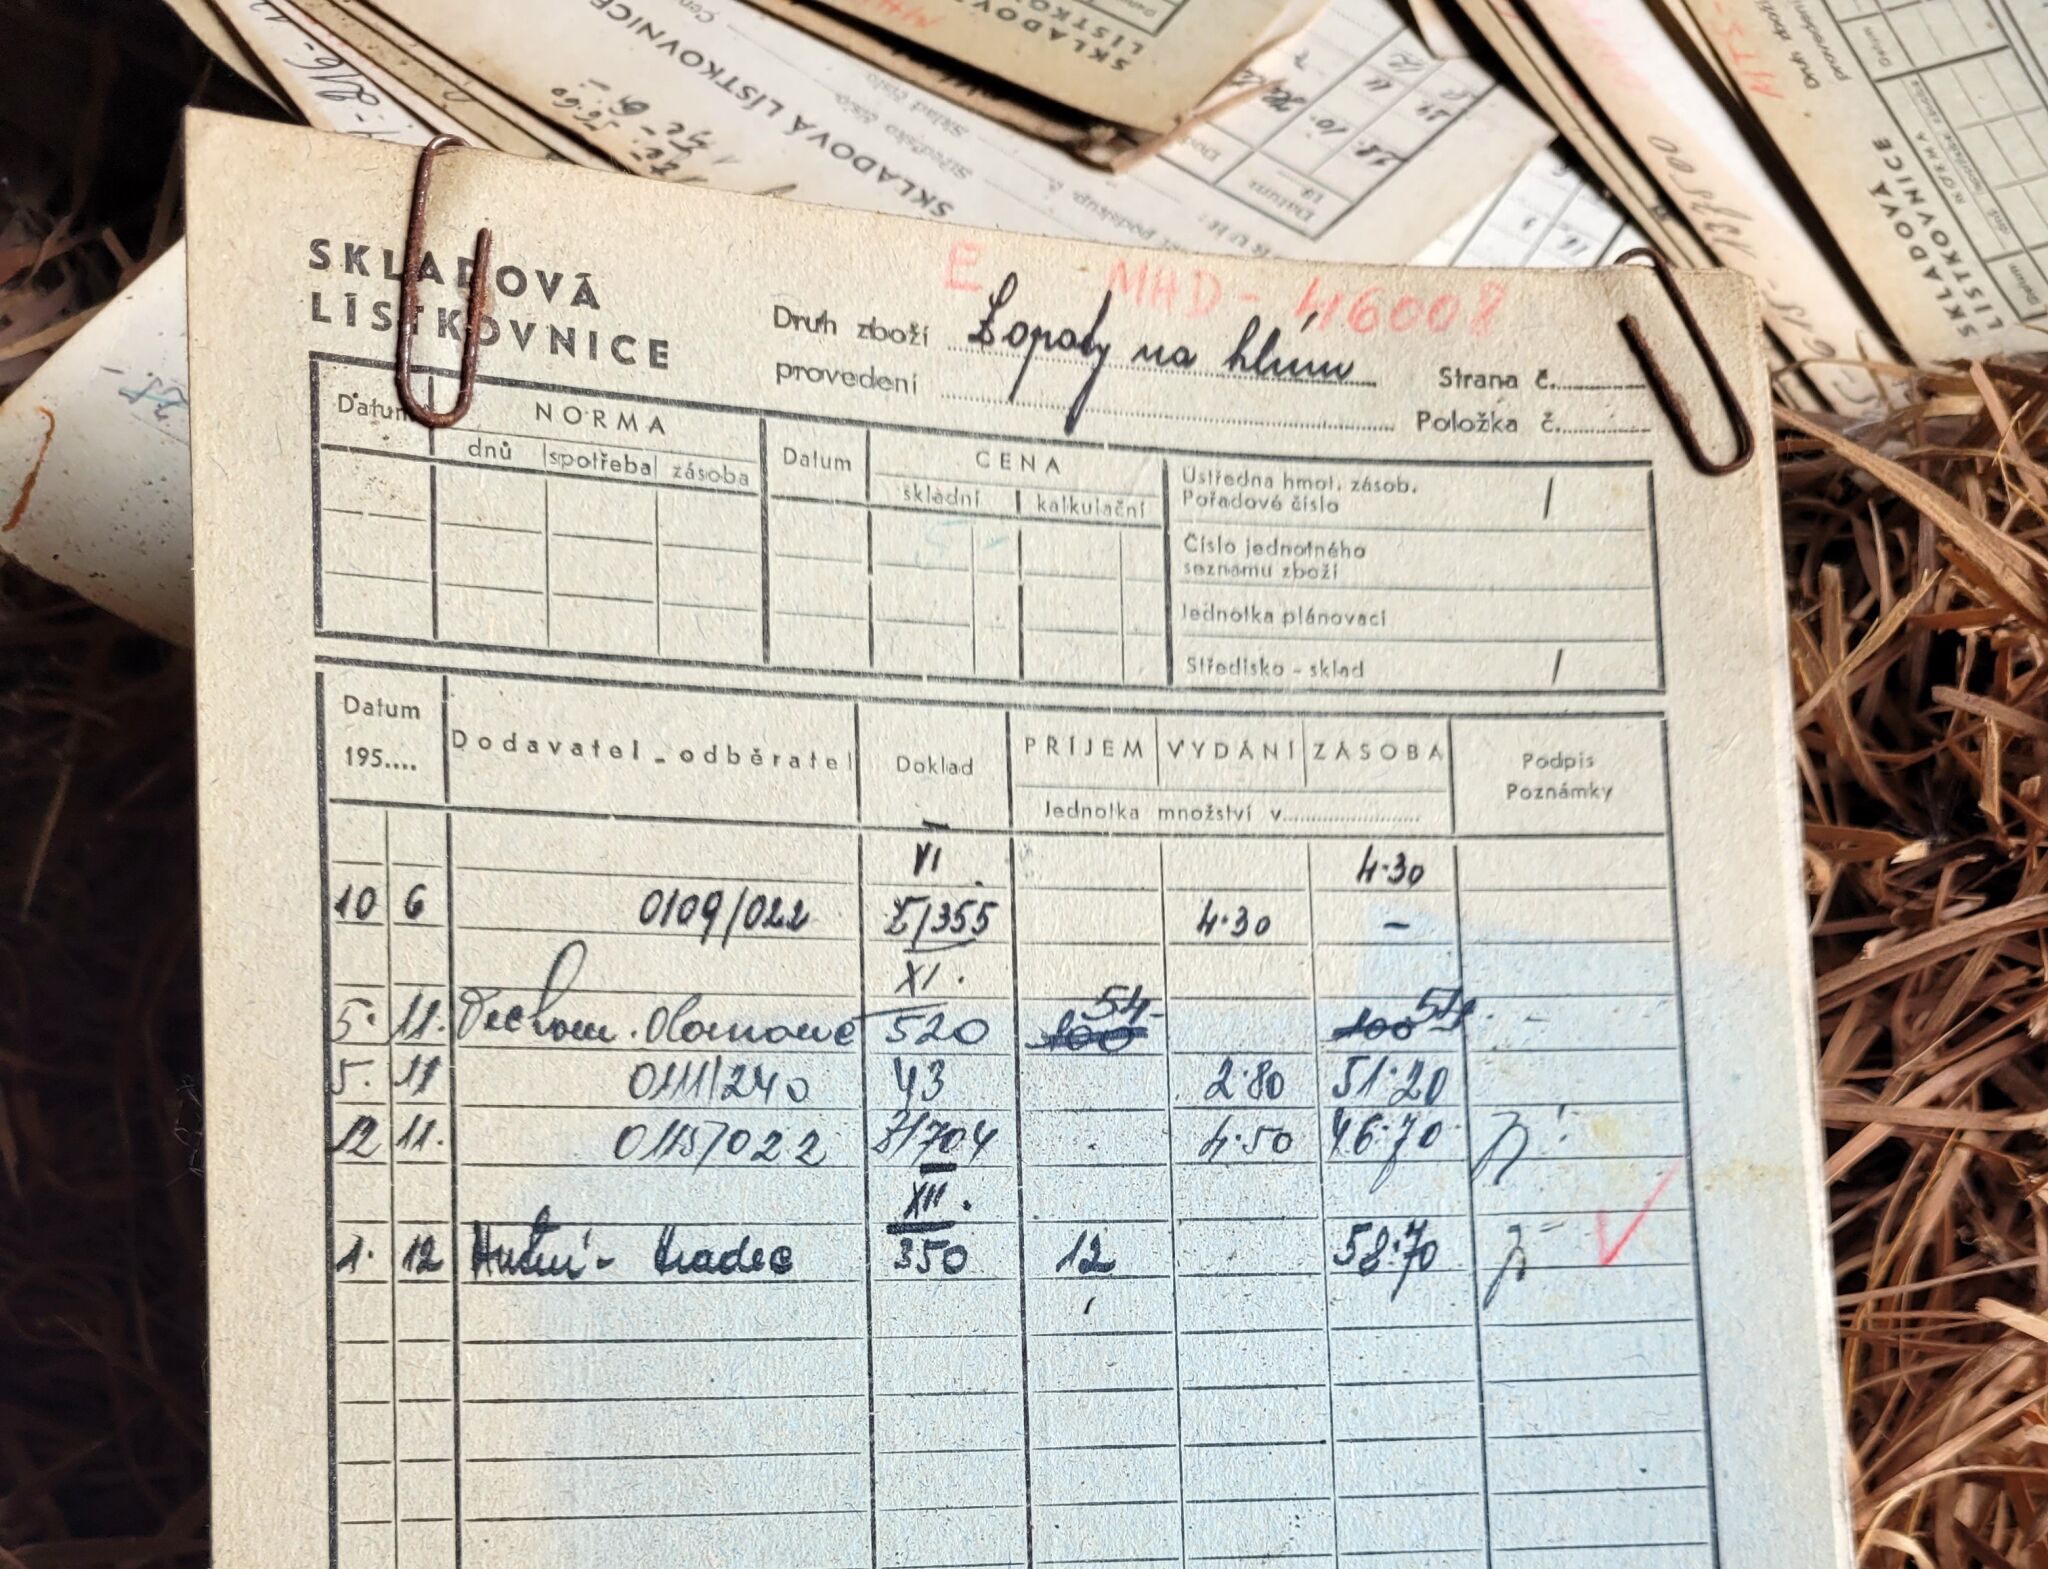 SKLADOVÁ LÍSTKOVNICE
SKLADOVÁ
LÍSTKOVNICE
SKLADOVÁ
LÍSTKOVNICE
13/500
SKLADOVÁ
LÍSTKOVNICE
E MAD-46008
Druh zboží Lopaty na hlínu
provedení
Strana č.
Položka č.
Datum NORMA
dnů spotřeba zásoba
Datum CENA
skladní kalkulační
Ústředna hmot. zásob. /
Pořadové číslo
Číslo jednotného
seznamu zboží
Jednotka plánovací
Středisko - sklad /
Datum
195....
Dodavatel - odběratel Doklad PŘÍJEM VYDÁNÍ ZÁSOBA Podpis
Poznámky
Jednotka množství v
VI 4·30
10 6 0109/022 Z/355 4·30 –
XI.
5. 11. Olomouc 520 100 54- 100 54
5. 11 0111/240 43 2·80 51·20
12 11. 0115/022 Z/704 4·50 46·70
XII.
1. 12 Hutní - Hradec 350 12 58·70